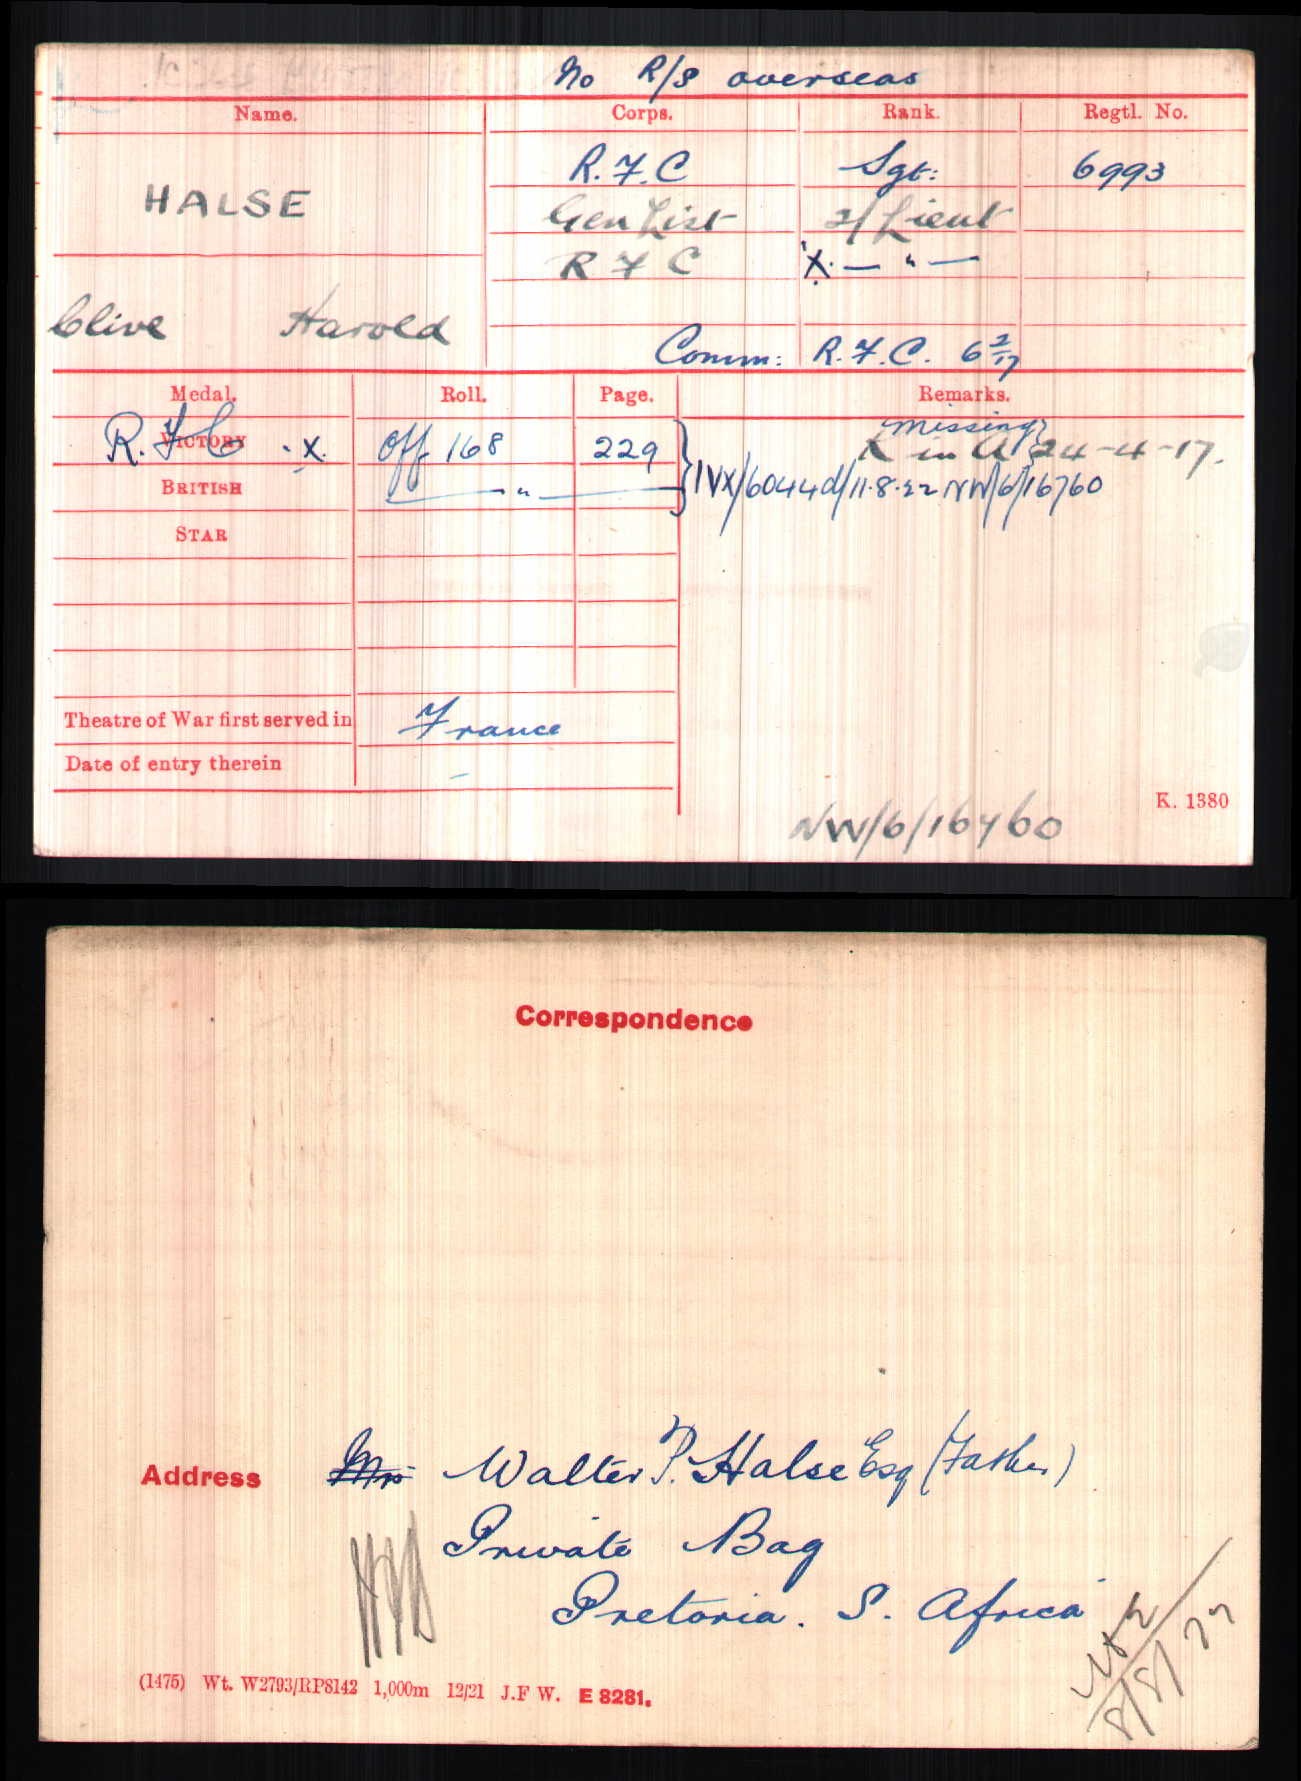 No R/S overseas
Name. Corps. Rank. Regtl. No.
HALSE R.F.C Sgt: 6993
Gen List 2/Lieut
R F C X. — " —
Clive Harold
Comm: R.F.C. 6 2/17
Medal. Roll. Page. Remarks.
missing
VICTORY R.F.C .X. Off 168 229 K in A 24-4-17.
BRITISH — " — IVX/6044d/11.8.22 NW/6/16760
STAR
Theatre of War first served in France
Date of entry therein –
K. 1380
NW/6/16760
Correspondence
Address Mrs Walter P. Halse Esq (Father)
Private Bag
Pretoria. S. Africa
8/8/22
(1475) Wt. W2793/RP8142 1,000m 12/21 J.F W. E 8281.